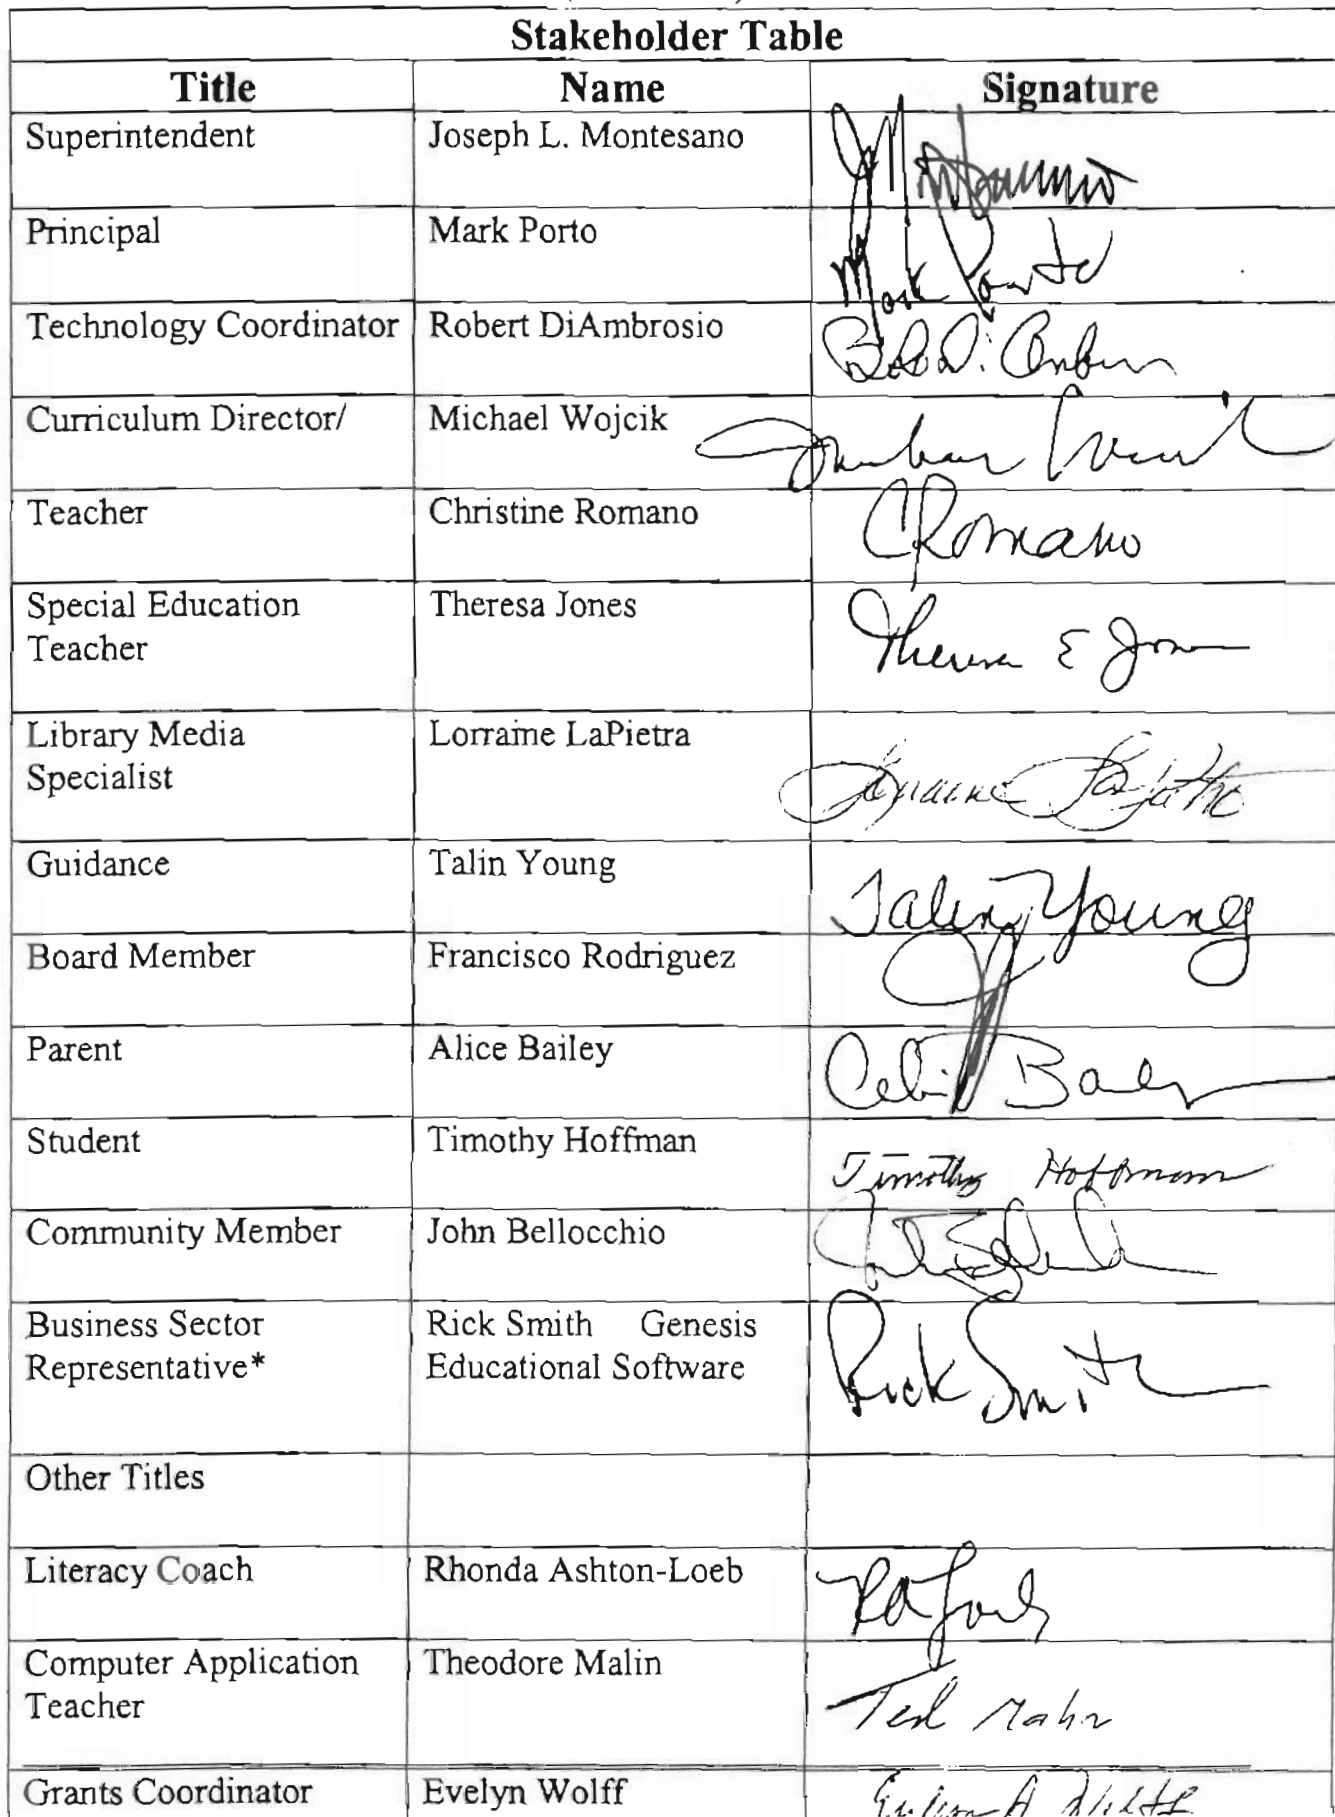 Stakeholder Table
Title Name Signature
Superintendent Joseph L. Montesano
Principal Mark Porto Mark Porto
Technology Coordinator Robert DiAmbrosio
Curriculum Director/ Michael Wojcik
Teacher Christine Romano CRomano
Special Education Theresa Jones Theresa E Jones
Teacher
Library Media Lorraine LaPietra
Specialist
Guidance Talin Young Talin Young
Board Member Francisco Rodriguez
Parent Alice Bailey
Student Timothy Hoffman Timothy Hoffmann
Community Member John Bellocchio
Business Sector Rick Smith Genesis Rick Smith
Representative* Educational Software
Other Titles
Literacy Coach Rhonda Ashton-Loeb
Computer Application Theodore Malin Ted Malin
Teacher
Grants Coordinator Evelyn Wolff